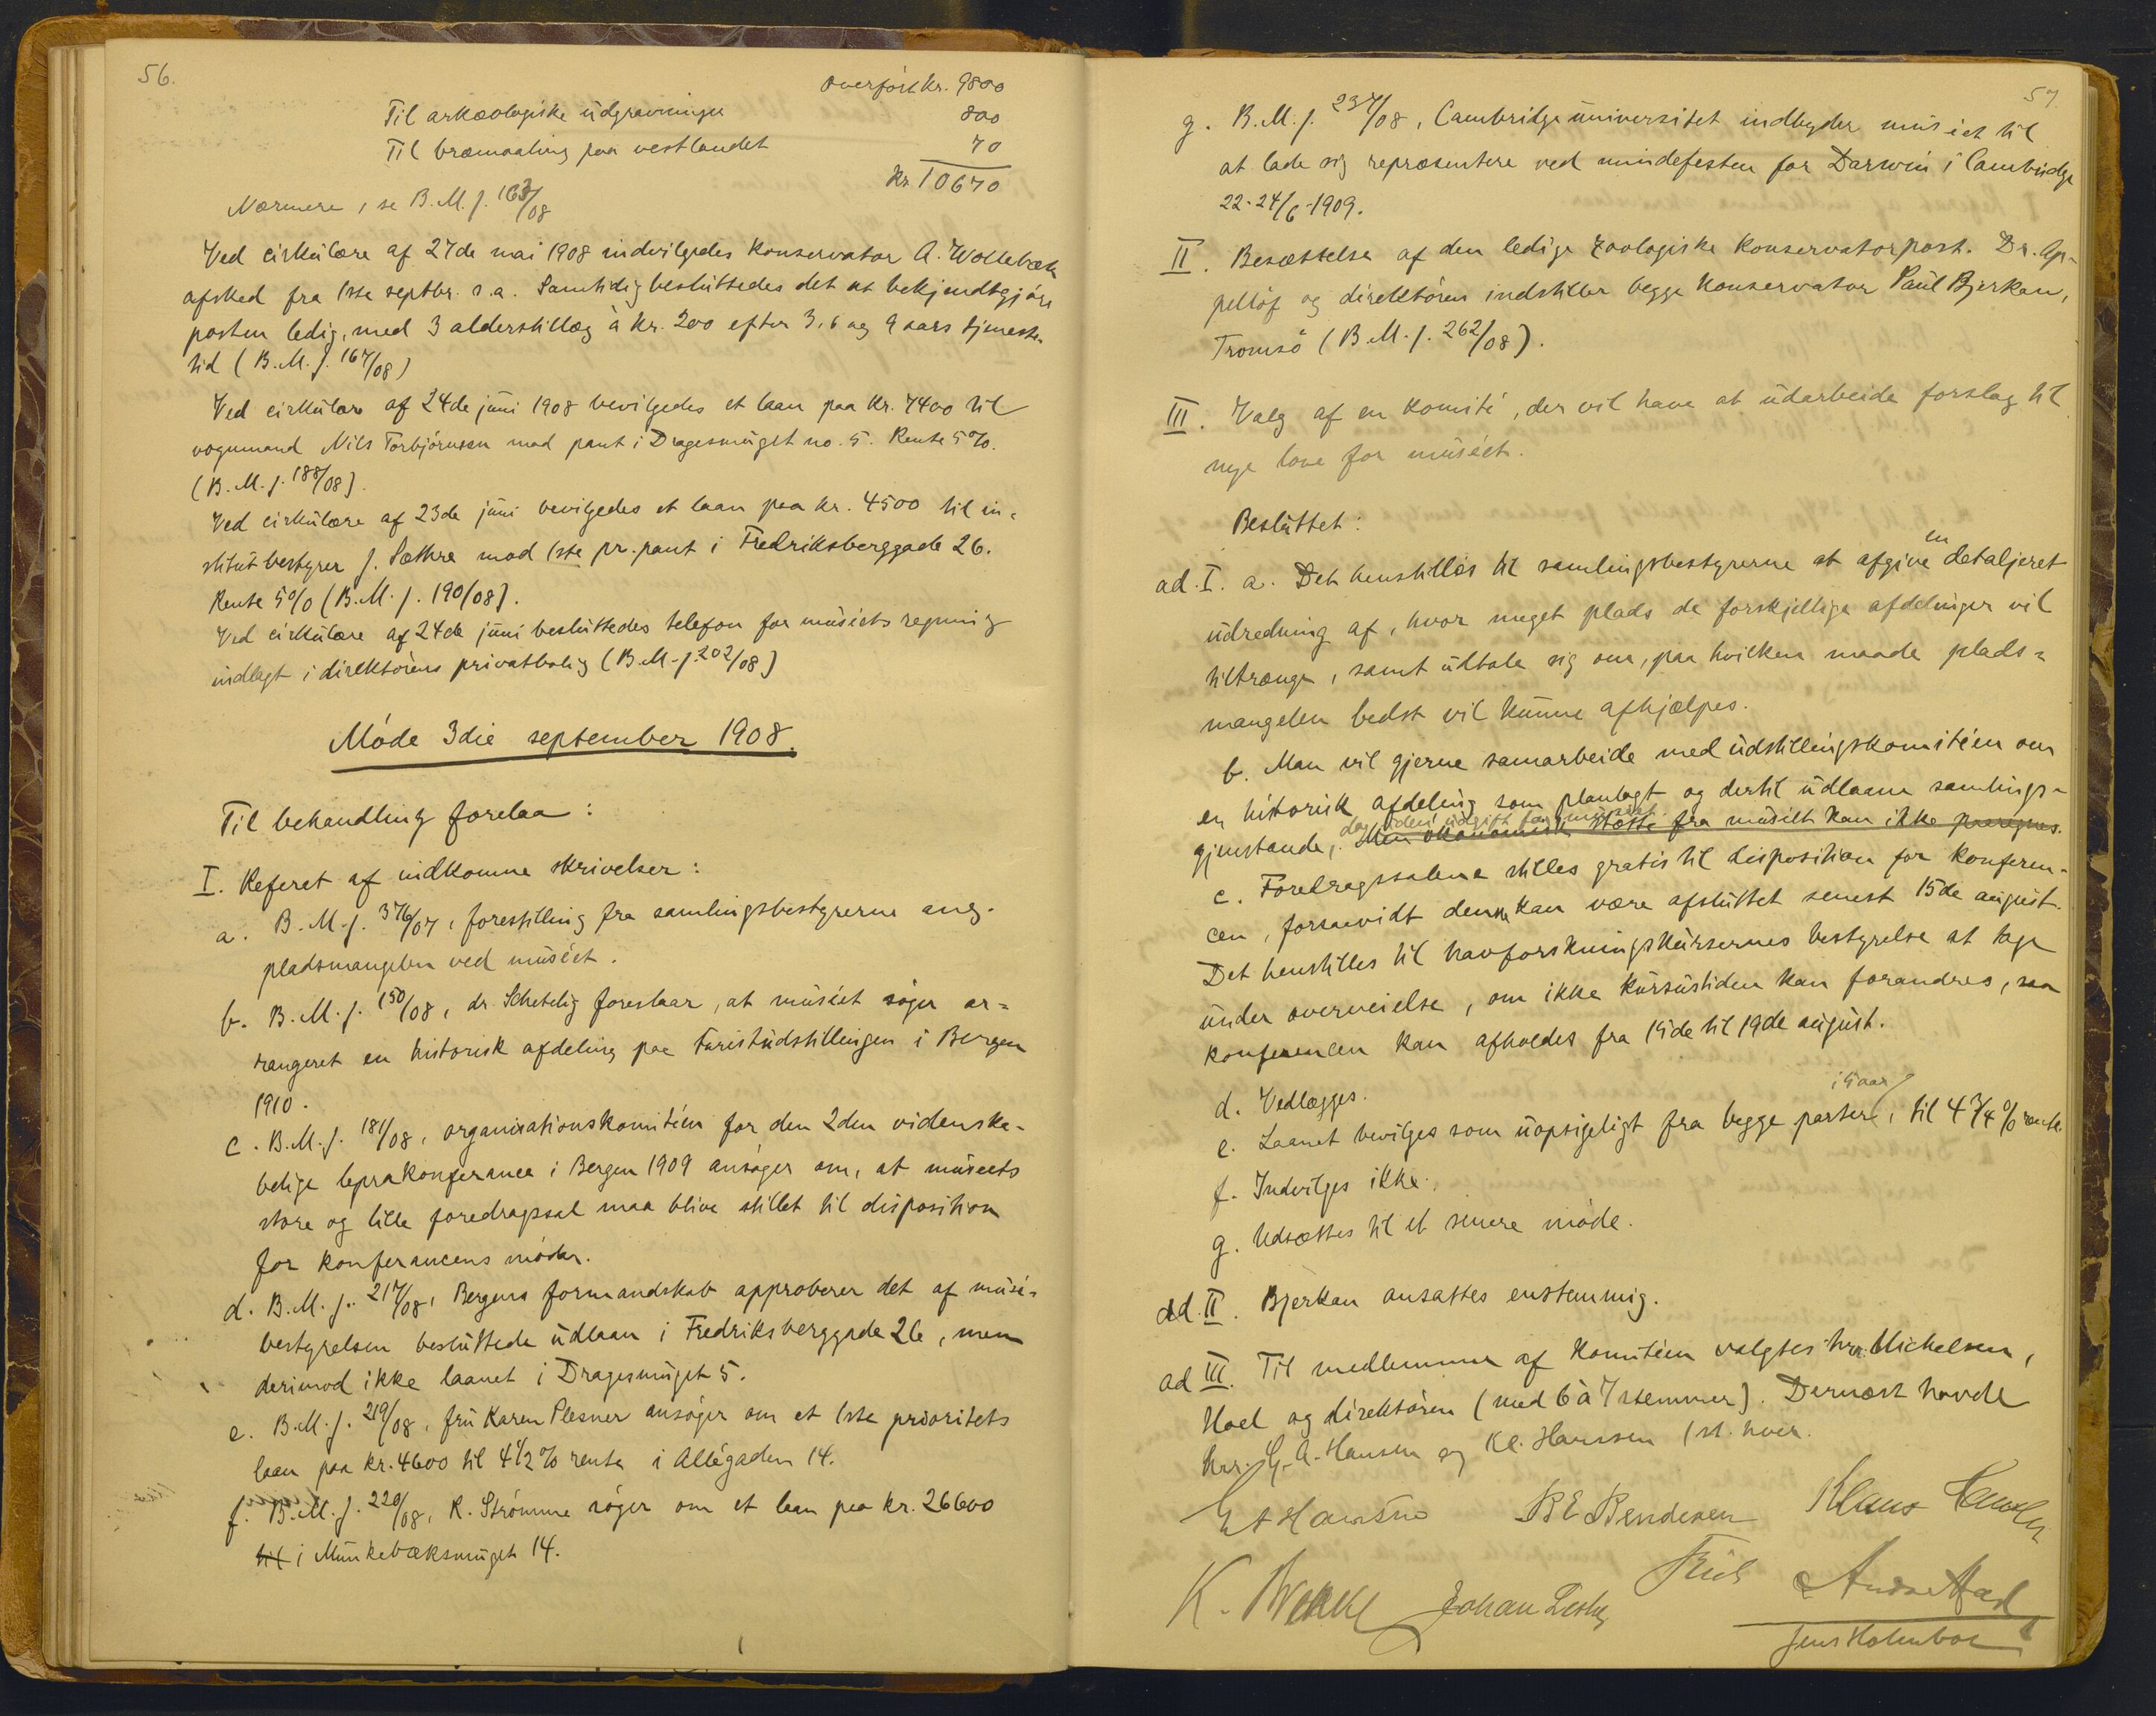 56.
Overfört kr. 9800
Til arkæologiske udgravninger 800
Til bræmaaling paa vestlandet 70
Kr. 10670
Nærmere, se B.M.j. 163/08
Ved cirkulære af 27de mai 1908 indvilgedes konservator A. Wollebæk
afsked fra 1ste septbr. s.a. Samtidig besluttedes det at bekjendtgjöre
posten ledig, med 3 alderstillæg à kr. 200 efter 3, 6 og 9 aars tjeneste-
tid (B.M.j. 167/08)
Ved cirkulære af 24de juni 1908 bevilgedes et laan paa kr. 7400 til
vognmand Nils Torbjörnsen mod pant i Dragesmuget no. 5. Rente 5%.
(B.M.j. 188/08).
Ved cirkulære af 23de juni bevilgedes et laan paa kr. 4500 til in-
stitutbestyrer J. Sæthre mod 1ste pr. pant i Fredriksberggade 26.
Rente 5% (B.M.j. 190/08).
Ved cirkulære af 24de juni besluttedes telefon for muséets regning
indlagt i direktörens privatbolig (B.M.j. 202/08)
Möde 3die september 1908.
Til behandling forelaa:
I. Referat af indkomne skrivelser:
a. B.M.j. 376/07, forestilling fra samlingsbestyrerne ang.
pladsmangelen ved muséet.
b. B.M.j. 150/08, dr. Schetelig foreslaar, at muséet söger ar-
rangeret en historisk afdeling paa Turistudstillingen i Bergen
1910.
c. B.M.j. 181/08, organisationskomitéen for den 2den videnska-
belige leprakonferance i Bergen 1909 ansöger om, at muséets
store og lille foredragssal maa blive stillet til disposition
for konferancens möder.
d. B.M.j. 217/08, Bergens formandskab approberer det af musé-
bestyrelsen besluttede udlaan i Fredriksberggade 26, men
derimod ikke laanet i Dragesmuget 5.
e. B.M.j. 219/08, fru Karen Plesner ansöger om et 1ste prioritets
laan paa kr. 4600 til 4 1/2 % rente i Allégaden 14.
f. B.M.j. 220/08, K. Strömme söger om et laan paa kr. 26600
til i Munkebæksmuget 14.
57
g. B.M.j. 237/08, Cambridge universitet indbyder muséet til
at lade sig repræsentere ved mindefesten for Darwin i Cambridge
22-24/6-1909.
II. Besættelse af den ledige zoologiske konservatorpost. Dr. Ap-
pellöf og direktören indstiller begge konservator Paul Bjerkan,
Tromsö (B.M.j. 262/08).
III. Valg af en komité, der vil have at udarbeide forslag til
nye love for muséet.
Besluttet:
ad. I. a. Det henstilles til samlingsbestyrerne at afgive en detaljeret
udredning af, hvor meget plads de forskjellige afdelinger vil
tiltrænge, samt udtale sig om, paa hvilken maade plads-
mangelen bedst vil kunne afhjælpes.
b. Man vil gjerne samarbeide med udstillingskomitéen om
en historisk afdeling som planlagt og dertil udlaane samlings-
gjenstande, dog uden udgift for muséet. Men ökonomisk stötte fra muséet kan ikke paaregnes.
c. Foredragssalene stilles gratis til disposition for konferen-
cen, forsaavidt denne kan være afsluttet senest 15de august.
Det henstilles til havforskningskursernes bestyrelse at tage
under overveielse, om ikke kursustiden kan forandres, saa
konferencen kan afholdes fra 15de til 19de august.
d. Vedlægges.
e. Laanet bevilges som uopsigeligt fra begge parter i 5 aar, til 4 3/4 % rente.
f. Indvilges ikke.
g. Udsættes til et senere möde.
ad. II. Bjerkan ansattes enstemmig.
ad III. Til medlemmer af komitéen valgtes hrr. Michelsen,
Hoel og direktören (med 6 à 7 stemmer). Dernæst havde
hrr. G. A. Hansen og Kl. Hanssen 1 st. hver.
G A Hansen B E Bendixen Klaus Hanssen
Johan Lothe
Jens Holmboe